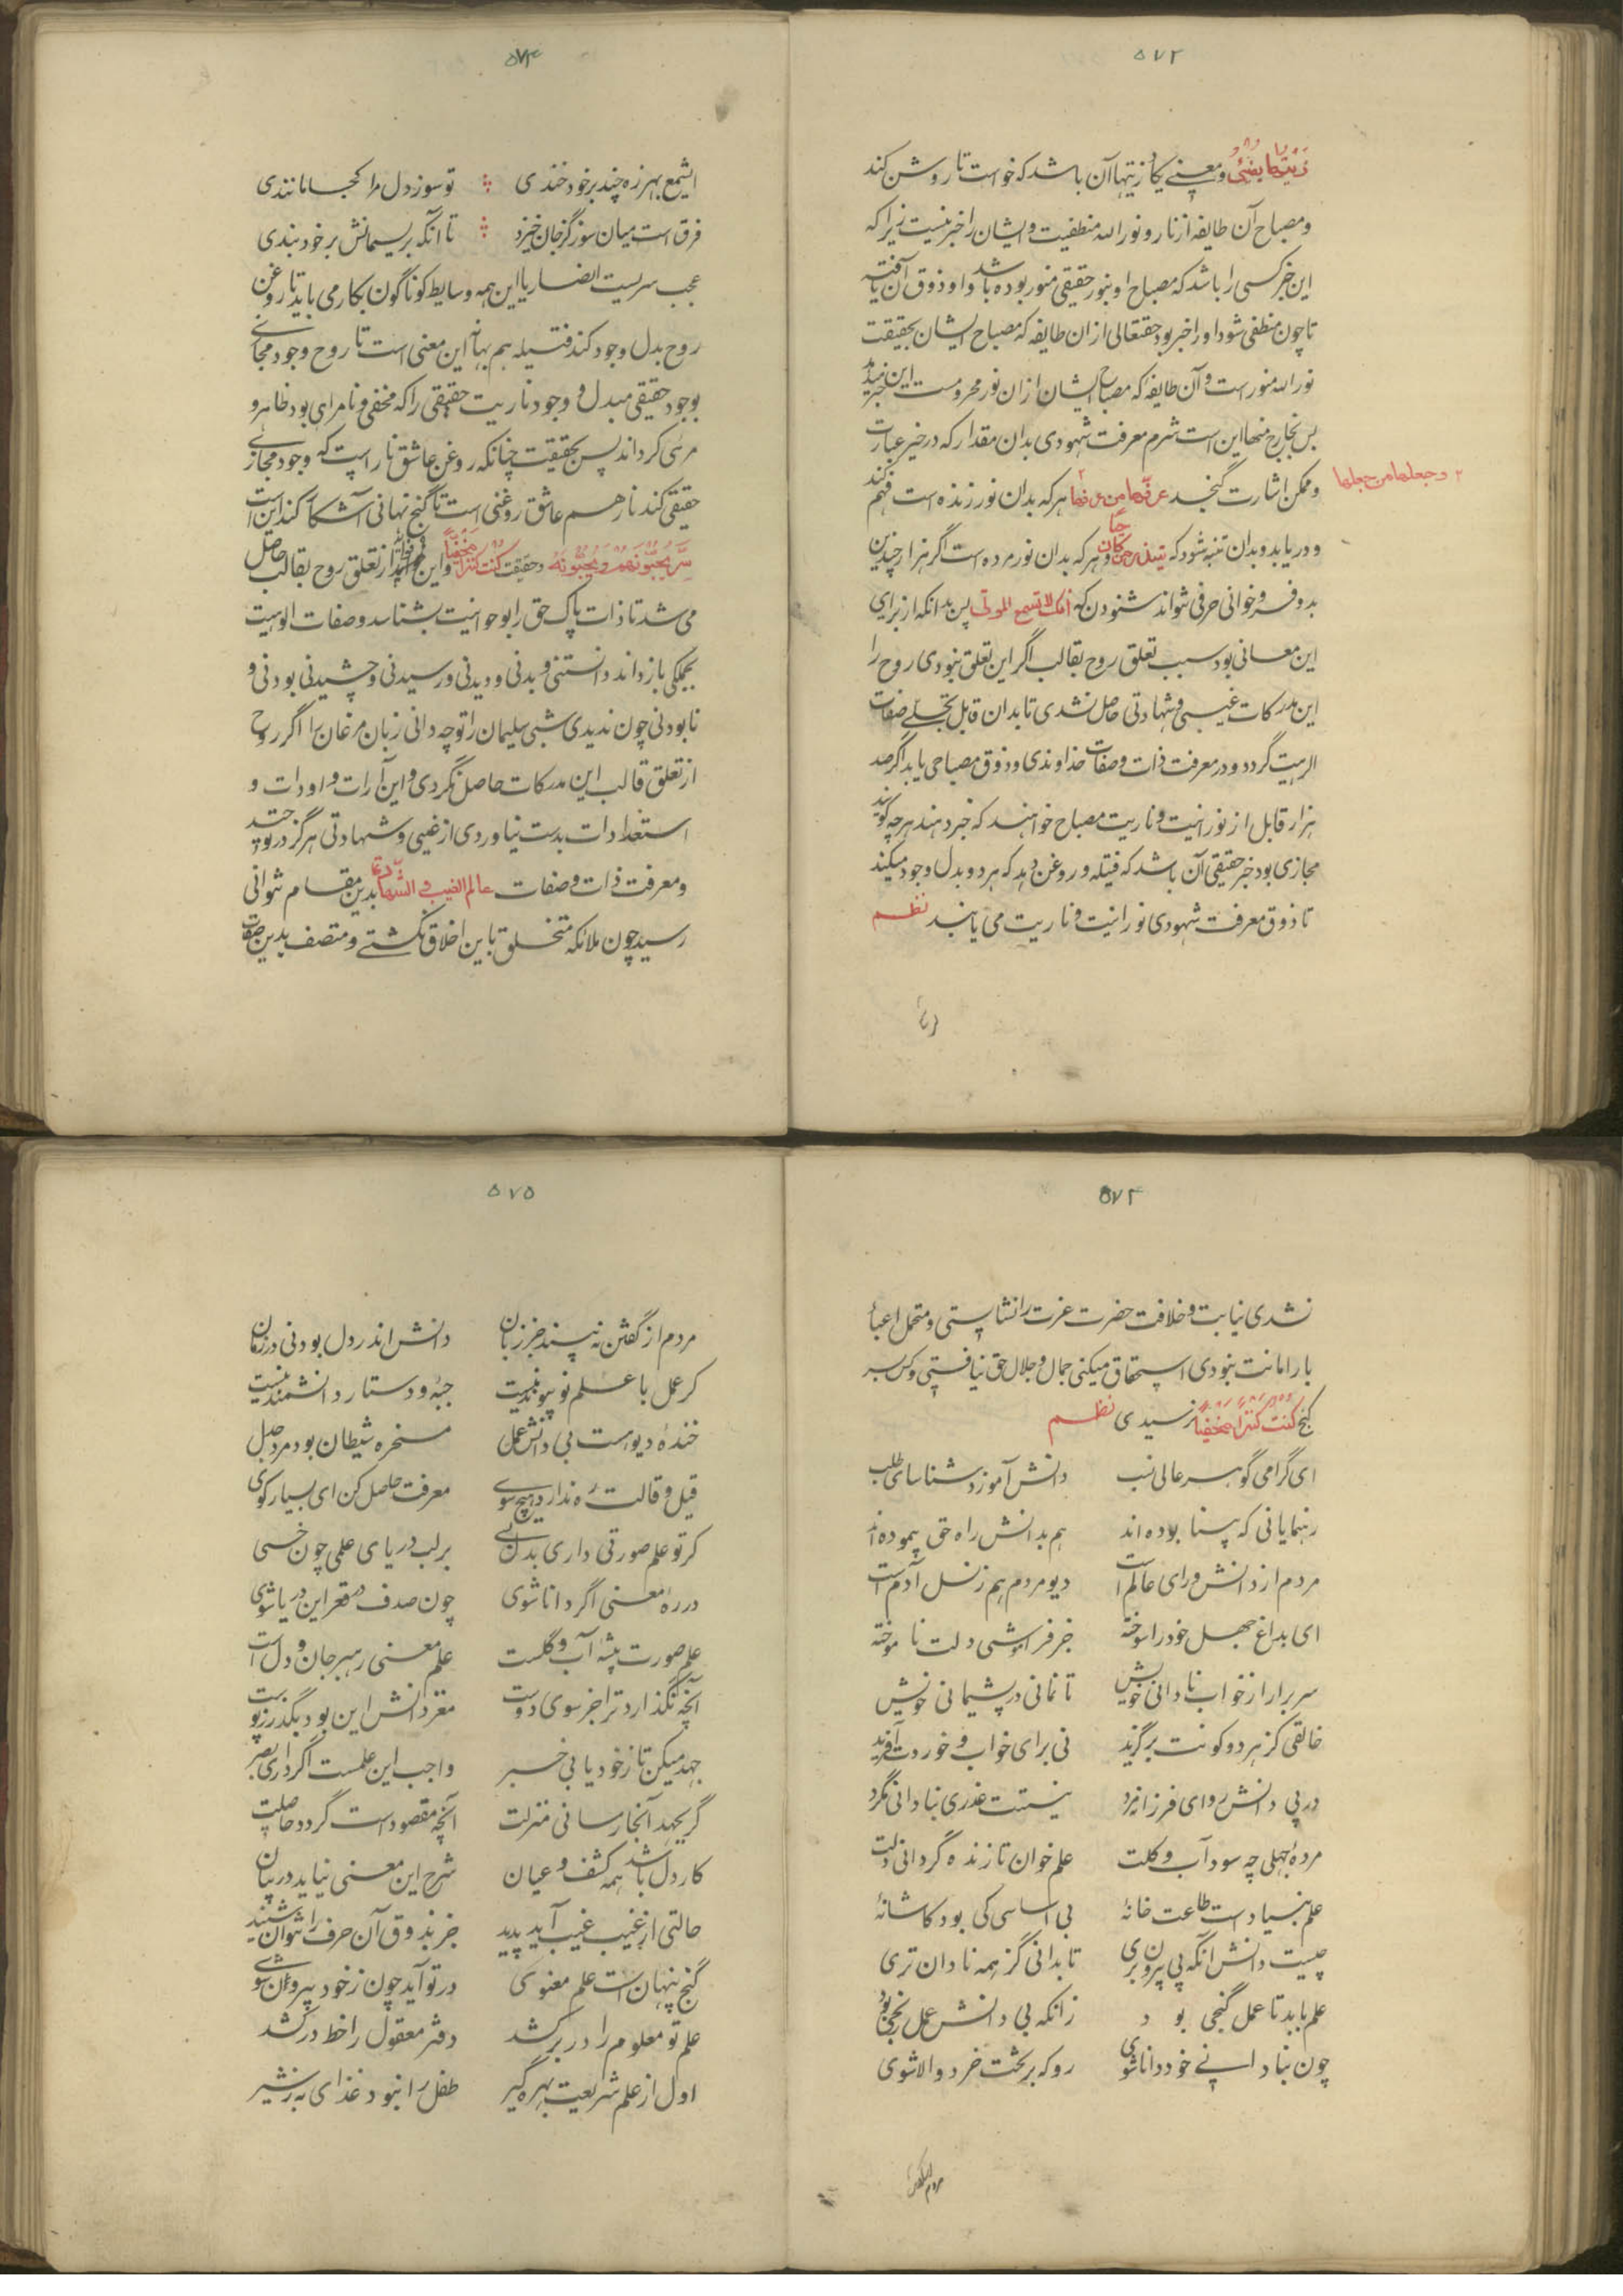 ۵۷۲
زیتها یضئ و معنی یکاد زیتها آن باشد که خواست تا روشن کند
و مصباح آن طایفه از نار و نور الله منطفیست و ایشان را خبر نیست زیرا که
این خبر کسی را باشد که مصباح او بنور حقیقی منور بوده باشد و او ذوق آن یافته
تا چون منطفی شود او را خبر بود حقتعالی از ان طایفه که مصباح ایشان بحقیقت
نور الله منور است و آن طایفه که مصباح ایشان از ان نور محرومست این خبر میدهد
بس بخارج منها این است شرم معرفت شهودی بدان مقدار که در خیر عبارت
و ممکن اشارت گنجد عرفها من عرفها هر که بدان نور زنده است فهم کند
۲ و جعلها من جهلها
و دریابد و بدان متنبه شود که لینذر من کان حیا و هر که بدان نور مرده است اگر هزار چندین
بدو فرو خوانی حرفی نتواند شنودن که انک لا تسمع الموتی پس بدانکه از برای
این معانی بود سبب تعلق روح بقالب اگر این تعلق نبودی روح را
این مدرکات غیبی و شهادتی حاصل نشدی تا بدان قابل تجلی صفات
الوهیت گردد و در معرفت ذات و صفات خداوندی و ذوق مصباحی یابد اگر صد
هزار قابل از نورانیت و ناریت مصباح خواهند که خبر دهند هر چه گویند
مجازی بود خبر حقیقی آن باشد که فتیله و روغن دهد که هر دو بدل وجود میکند
تا ذوق معرفت شهودی نورانیت و ناریت می یابند نظم
۵۷۳
ایشمع بهرزه چند بر خود خندی تو سوز دل مرا کجا مانندی
فرق است میان سوز گز جان خیزد تا آنکه بریسمانش بر خود بندی
عجب سریست انضاریا این همه وسایط کوناکون بکار می باید تا روغن
روح بدل وجود کند فتیله هم بهآ این معنی است تا روح وجود مجازی
بوجود حقیقی مبدل و وجود ناریت حقیقی را که مخفی و نامرای بود ظاهر و
مرئی کرداند پس بحقیقت چنانکه روغن عاشق نار است که وجود مجازی
حقیقی کند نار هم عاشق روغنی است تا گنج نهانی آشکارا کند این است
سر یحبهم و یحبونه و حقیقت کنت کنزا مخفیا و این از تعلق روح بقالب حاصل
می شد تا ذات پاک حق را بوحدانیت بشناسد و صفات الوهیت
بجملگی باز داند دانستنی و بدنی و دیدنی و رسیدنی و چشیدنی بودنی و
نابودنی چون ندیدی شبی سلیمان را تو چه دانی زبان مرغان را اگر روح
از تعلق قالب این مدرکات حاصل نکردی و این آرات و اودات و
استعدادات بدست نیاوردی از غیبی و شهادتی هرگز در توحید
و معرفت ذات و صفات عالم الغیب و الشهادة بدین مقام نتوانی
رسید چون ملائکه متخلق باین اخلاق نگشتے و متصف بدین صفات
۵۷۴
نشدی نیابت و خلافت حضرت عزت را نشایستی و متحمل اعباء
بار امانت نبودی استحقاق میکنی جمال و جلال حق نیافتی و کس بسر
گنج کنت کنزا مخفیا نرسیدی نظم
ای گرامی گوهر عالی نسب دانش آموز و شناسای طلب
رهنمایانی که بینا بوده اند هم بدانش راه حق پیموده اند
مردم از دانش ورای عالم است دیو مردم هم ز نسل آدم است
ای بداغ جهل خود را سوخته جز فراموشی دلت ناموخته
سر برار از خواب نادانی خویش تا نمانی در پشیمانی خویش
خالقی کز هر دو کونت برگزید نی برای خواب و خوردت آفرید
در پی دانش رو ای فرزانه مرد نیستت عذری بنادانی مگرد
مرده جهلی چه سود آب و گلت علم خوان تا زنده گردانی دلت
علم بنیاد است طاعت خانهٔ بی اساسی کی بود کاشانهٔ
چیست دانش آنکه پی بیرون بری تا بدانی گز همه نادان تری
علم باید تا عمل گنجی بود زانکه بی دانش عمل رنجی بود
چون بنادانی خود دانا شوی روکه بر تخت خرد والا شوی
مردم از گفتن
۵۷۵
مردم از گفتن نه بیند جز زبان دانش اندر دل بود نی در زبان
کر عمل با علم تو پیوند نیست جبه و دستار دانشمند نیست
خندهٔ دیو است بی دانش عمل مسخره شیطان بود مرد جهل
قیل و قالت ره ندارد هیچ سوی معرفت حاصل کن ای بسیار کوی
کر تو علم صورتی داری بدلی بر لب دریای علمی چون خسی
در ره معنی اگر دانا شوی چون صدف در قعر این دریا شوی
علم صورت پیشه آب و گلست علم معنی رهبر جان و دل است
آنچه نگذارد ترا جز سوی دوست مغز دانش این بود بگذر ز پوست
جهد میکن تا ز خود یابی خبر واجب این علمست اگر داری بصر
گر بجهد آنجا رسانی منزلت آنچه مقصود است گردد حاصلت
کار دل باشد همه کشف و عیان شرح این معنی نیاید در بیان
حالتی از غیب غیب آید پدید جز بذوق آن حرف را نتوان شنید
گنج پنهان است علم معنوی در تو آید چون ز خود بیرون شوی
علم تو معلوم را در بر کشد دفتر معقول را خط در کشد
اول از علم شریعت بهره گیر طفل را نبود غذای به ز شیر